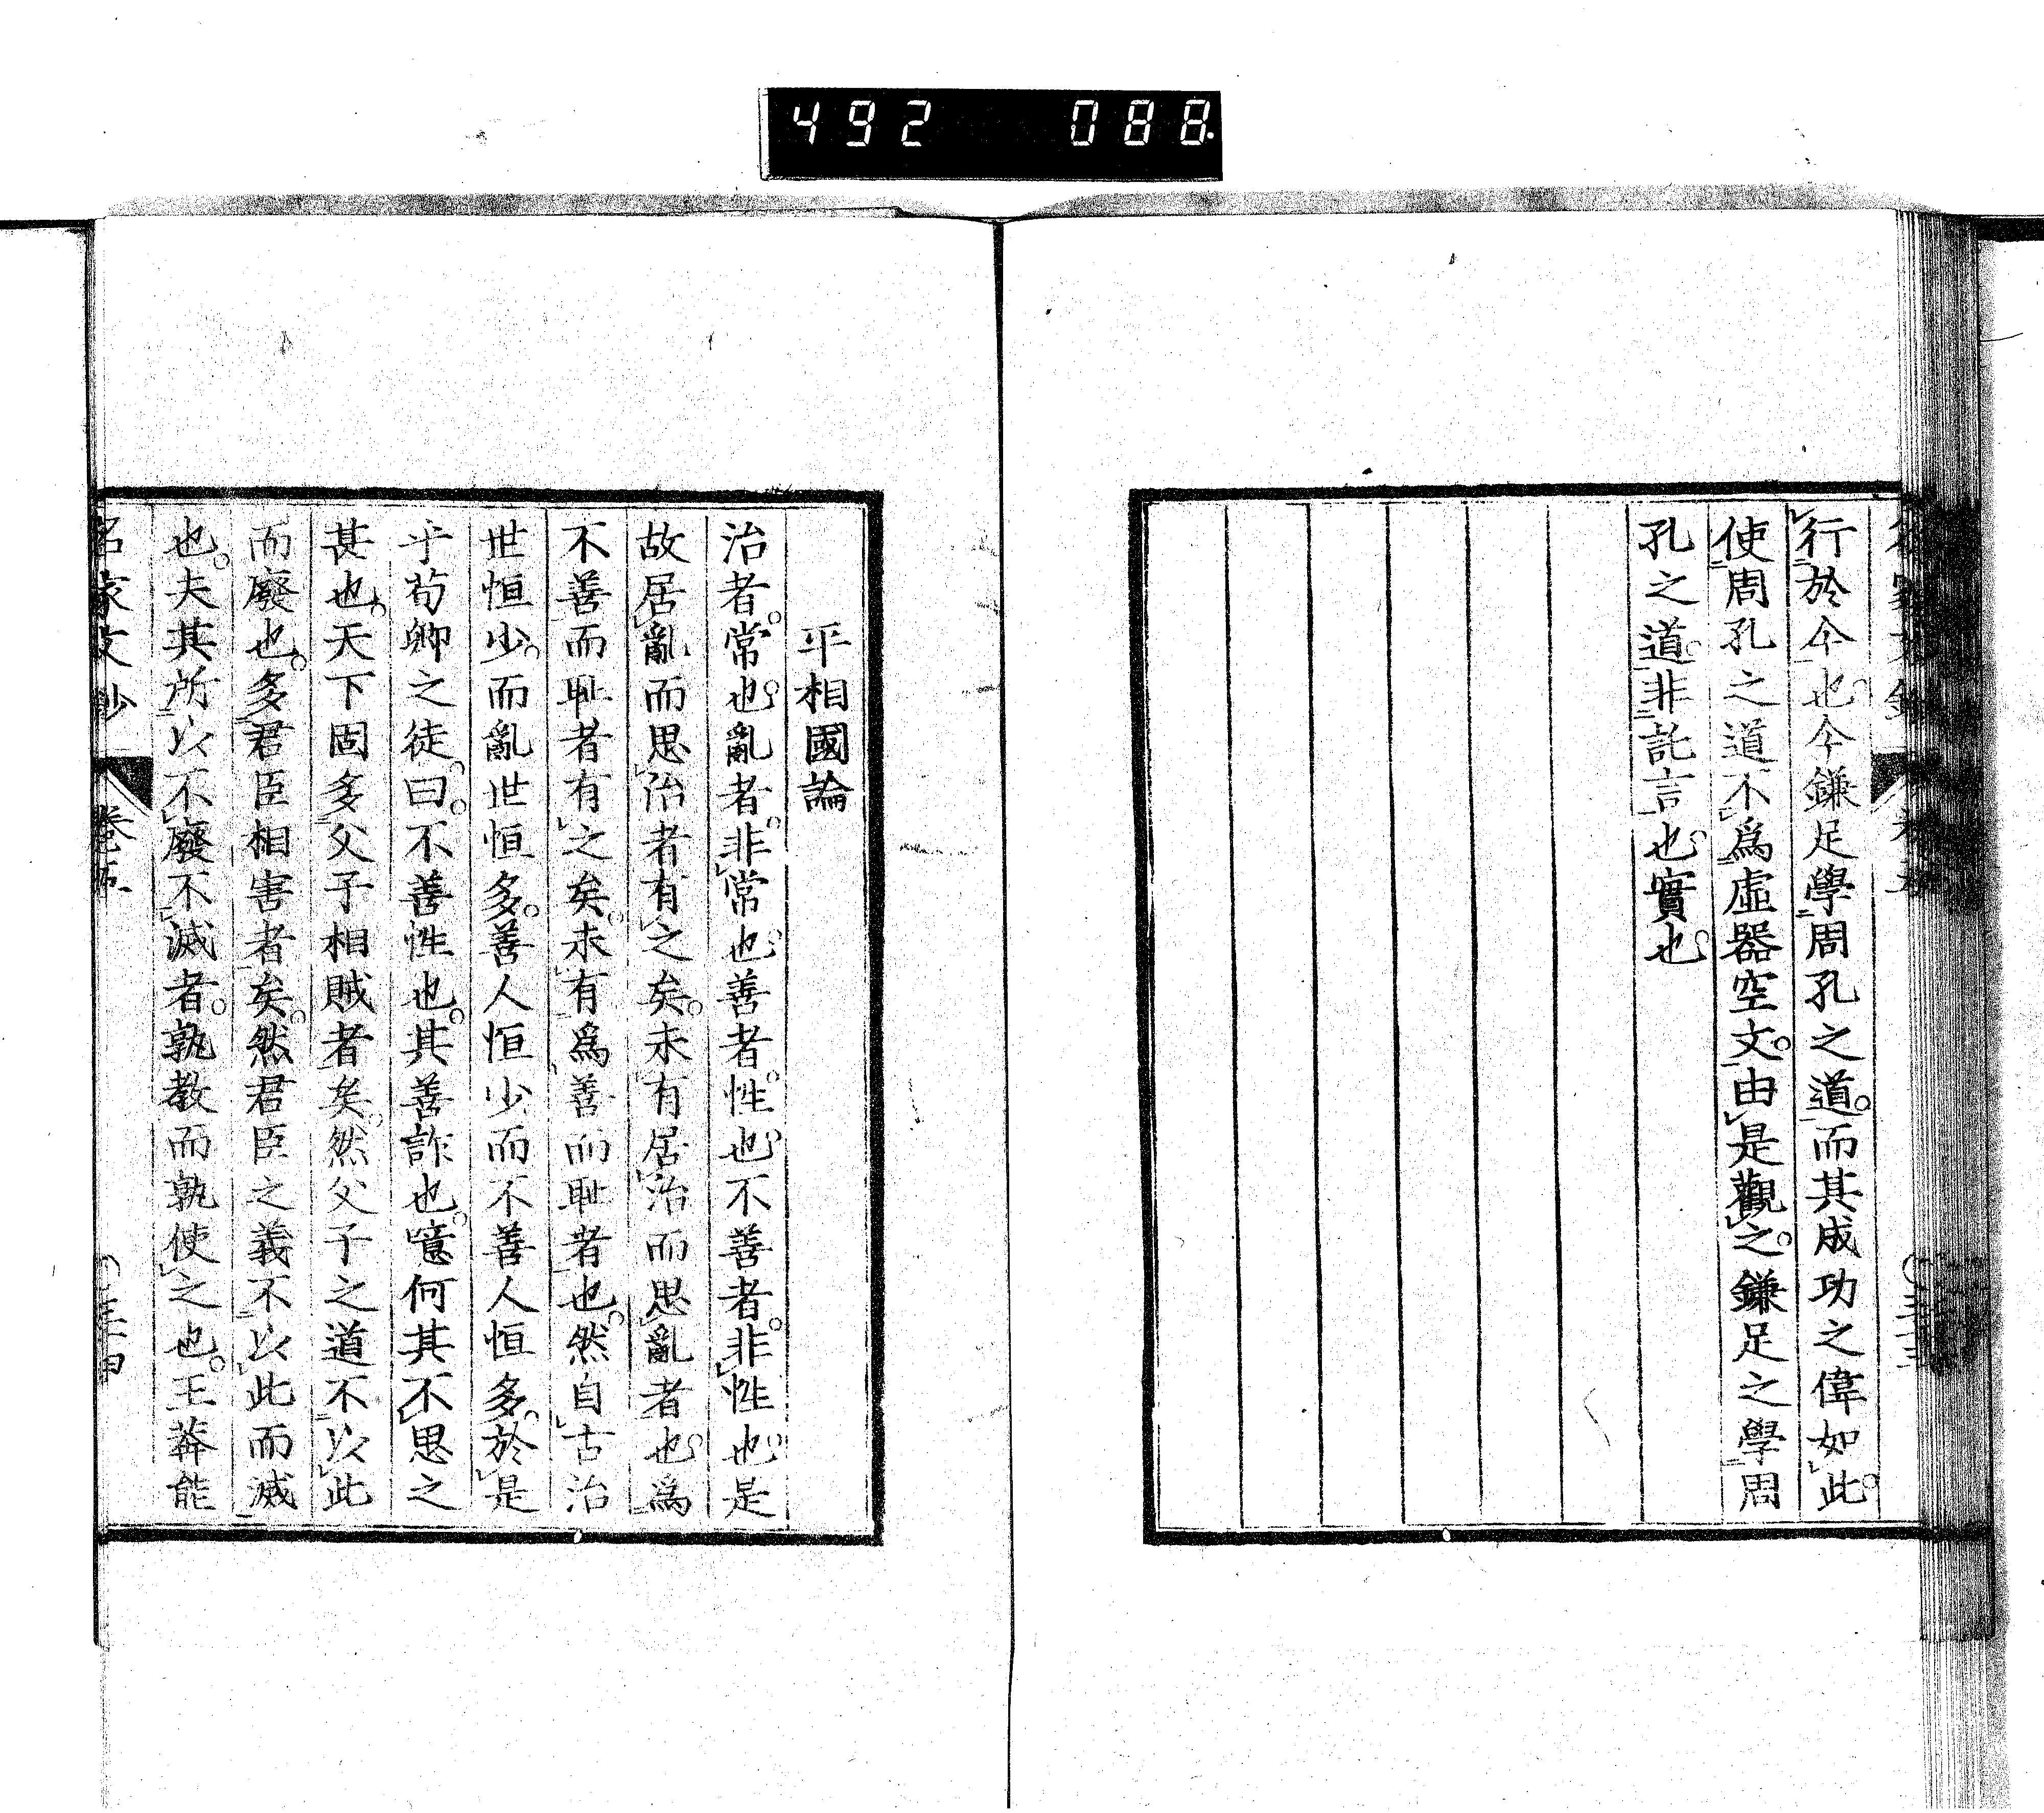 492 088
行於今也今鎌足學周孔之道。而其成功之偉如此。
使周孔之道不爲虛器空文。由是觀之。鎌足之學周
孔之道。非託言也。實也
平相國論
治者。常也。亂者。非常也。善者。性也。不善者。非性也。是
故居亂而思治者有之矣。未有居治而思亂者也。爲
不善而耻者有之矣。未有爲善而耻者也。然自古治
世恒少。而亂世恒多。善人恒少而不善人恒多。於是
乎荀卿之徒曰。不善性也。其善詐也。噫何其不思之
甚也。天下固多父子相賊者矣。然父子之道不以此
而廢也。多君臣相害者矣。然君臣之義不以此而滅
也。夫其所以不廢不滅者。孰教而孰使之也。王莽能
名家文鈔 卷五